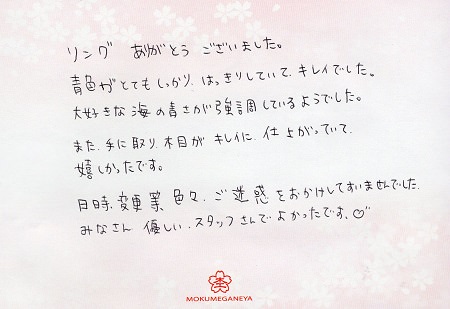 リング ありがとう ございました。
青色がとてもしっかり、はっきりしていて、キレイでした。
大好きな海の青さが強調しているようでした。
また、手に取り、木目がキレイに、仕上がっていて、
嬉しかったです。
日時、変更等、色々、ご迷惑をおかけしてすいませんでした。
みなさん 優しい、スタッフさんでよかったです、♡
MOKUMEGANEYA